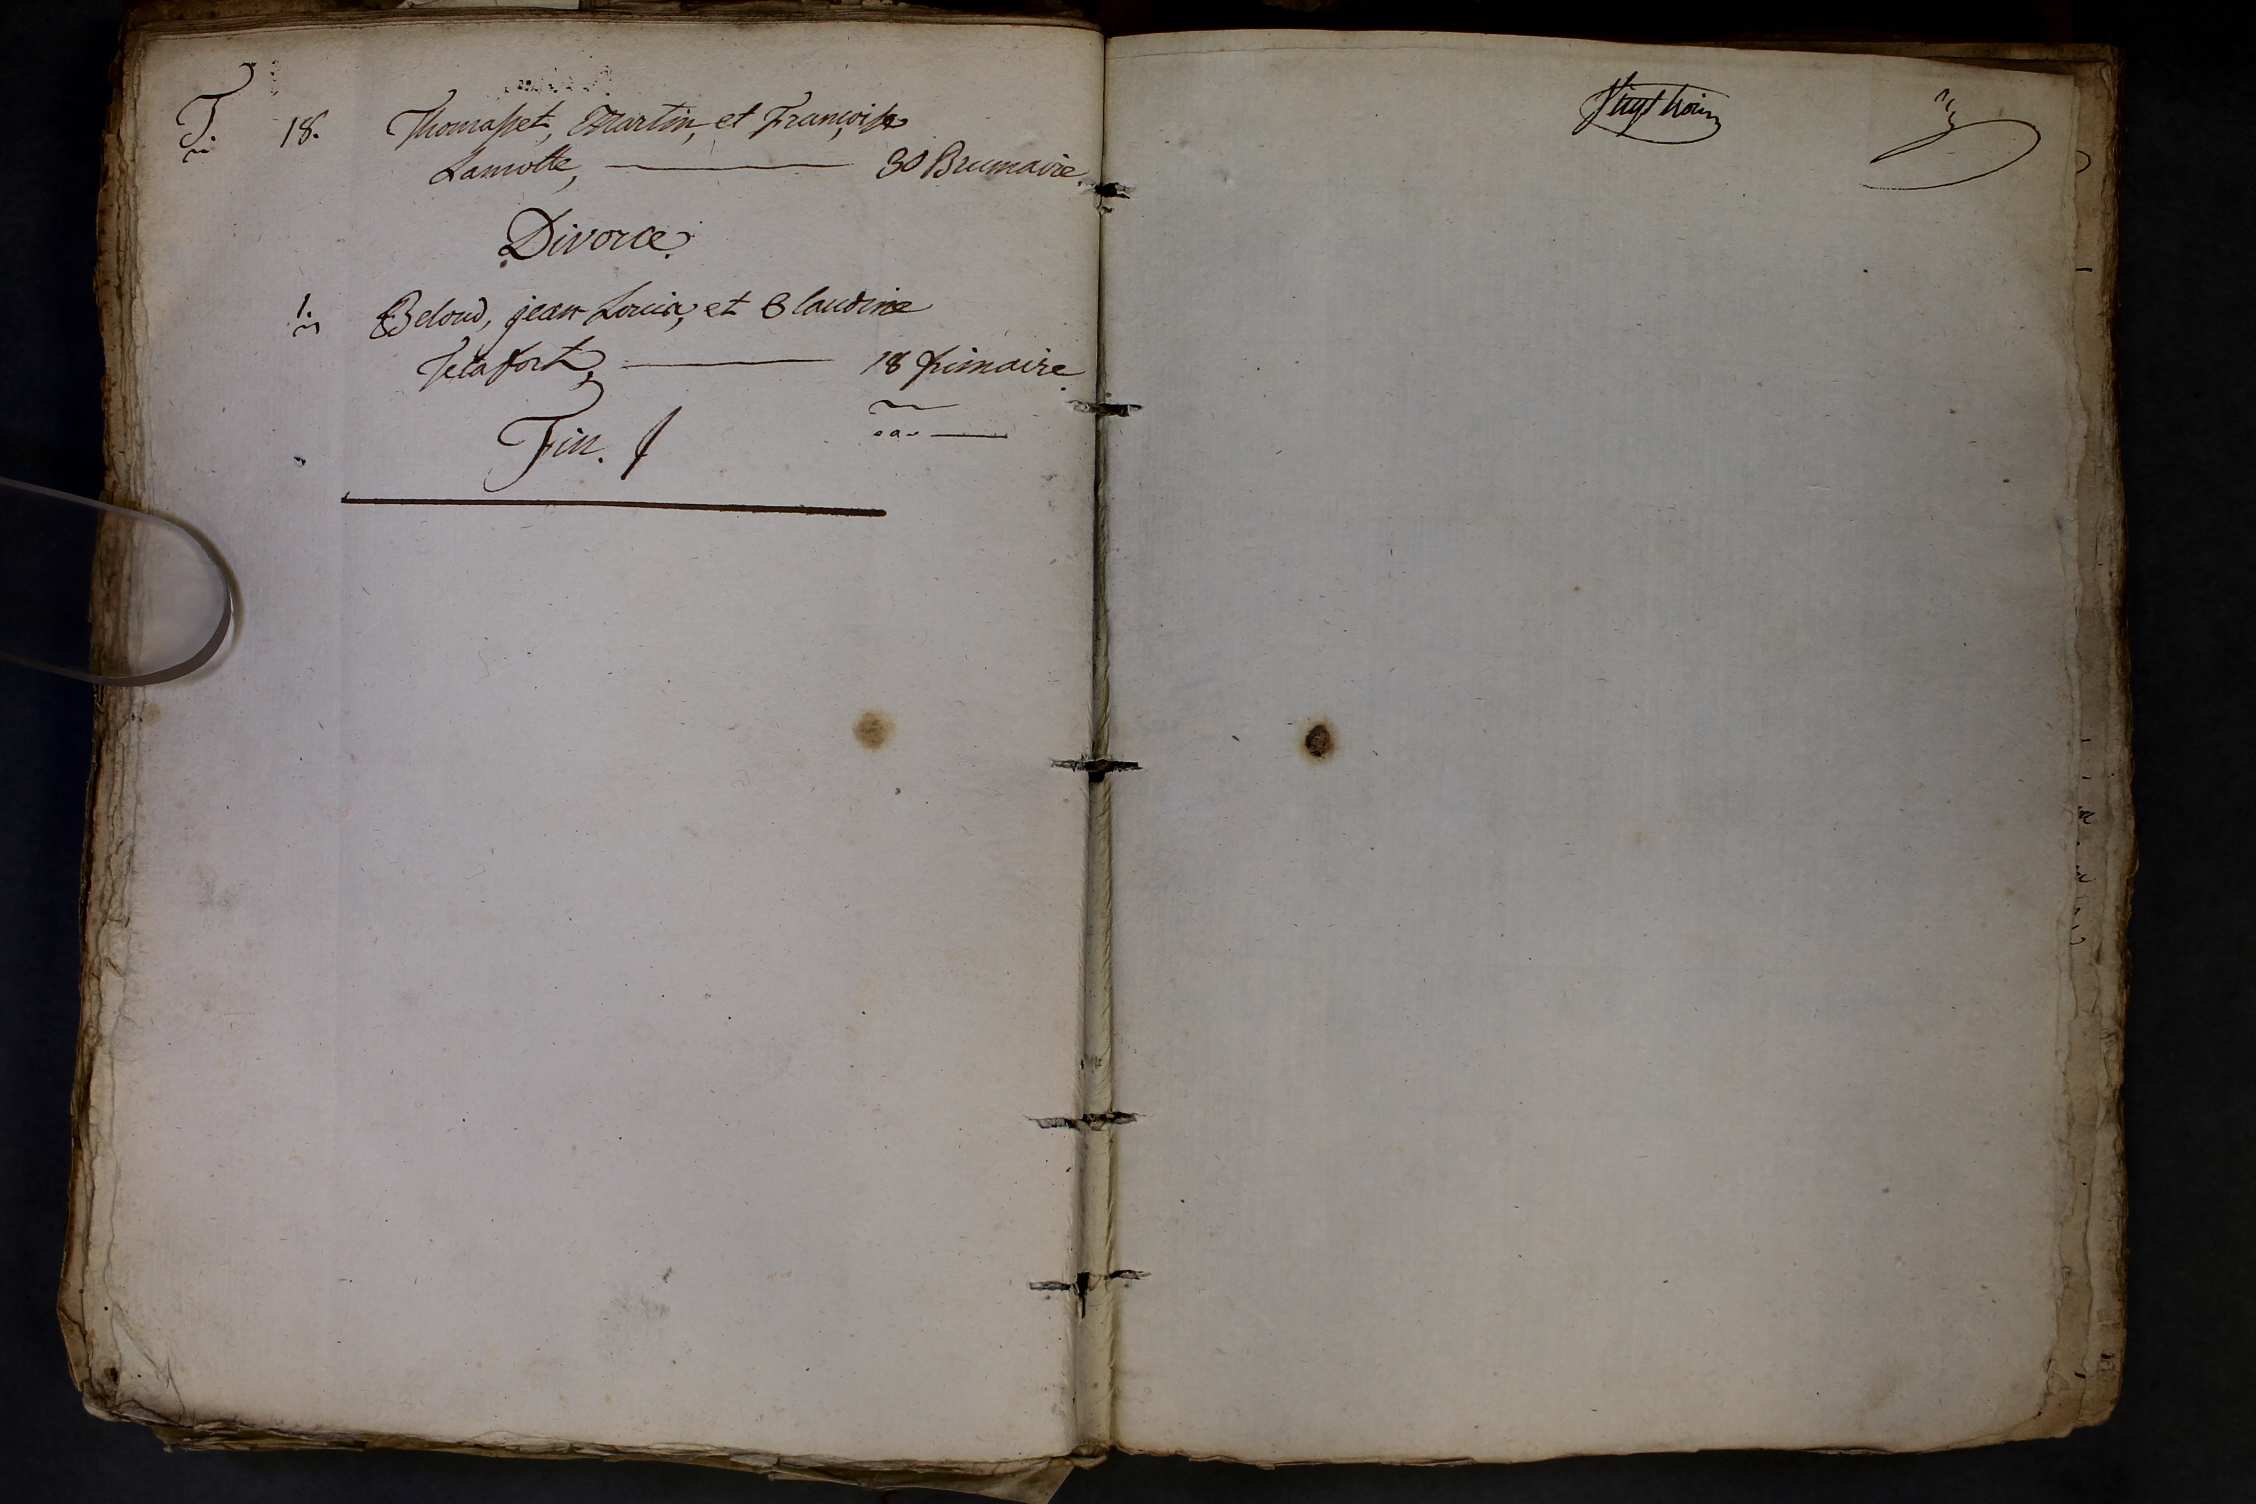 T. 18. Thomasset, Martin, et Françoise
Lamotte, 30 Brumaire.
Divorce.
1. Beloud, jean Louis, et Claudine
18 frimaire.
Fin.